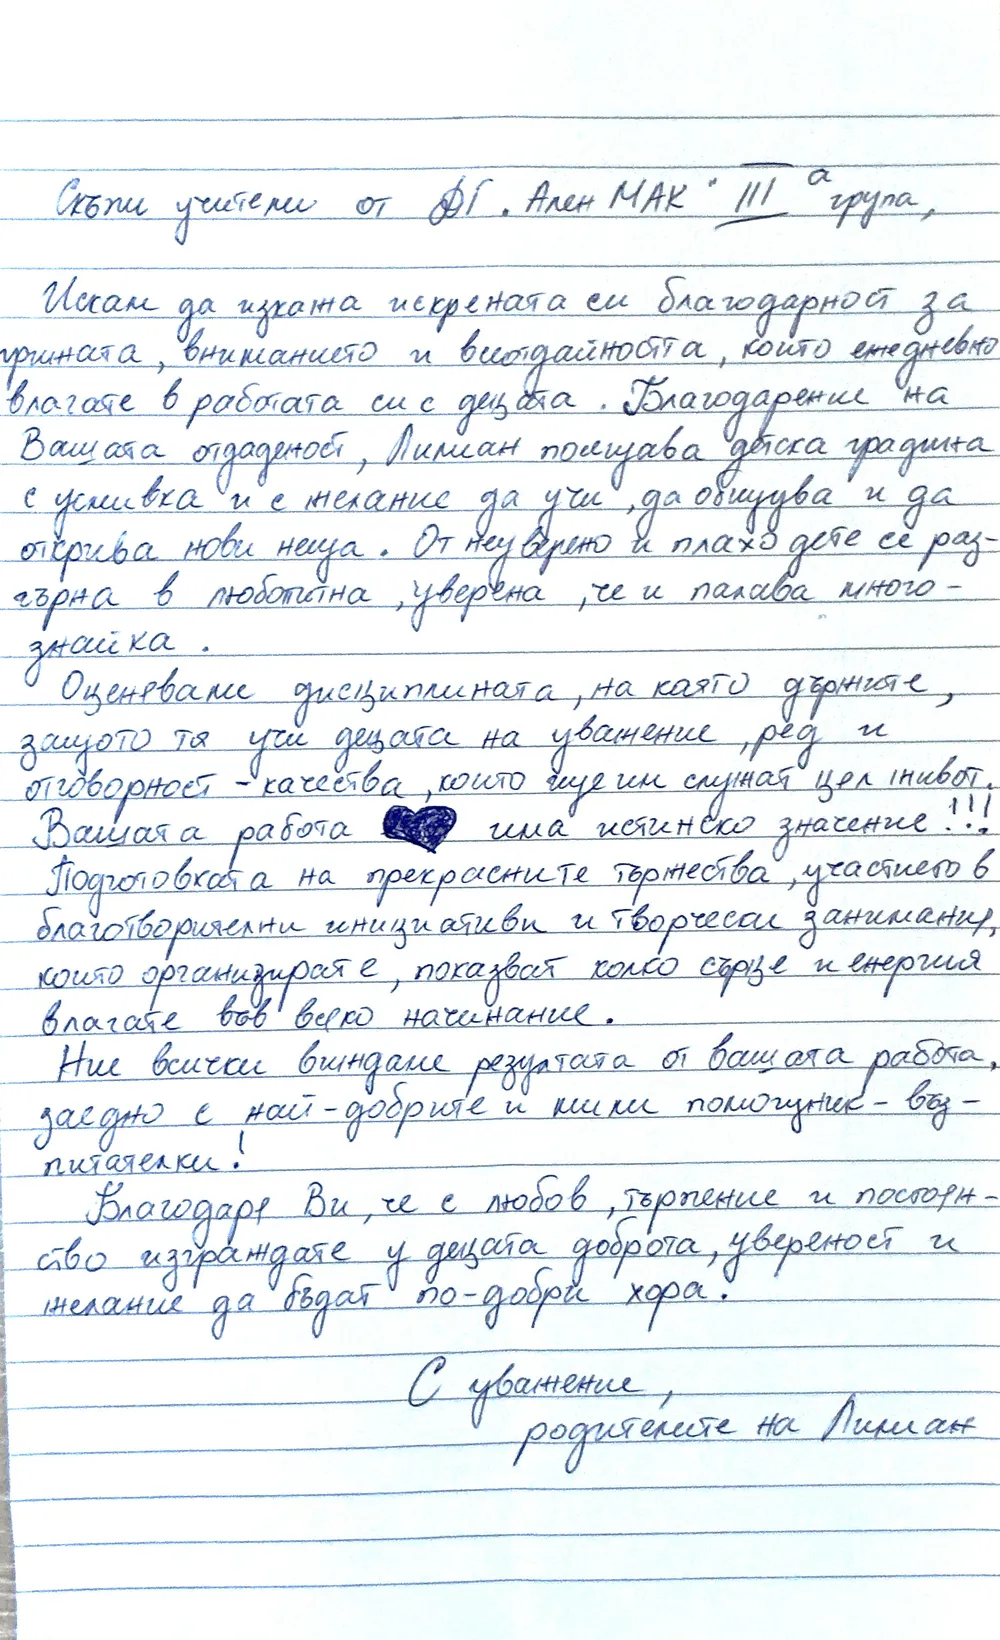 Скъпи учители от ДГ „Ален МАК" III а група,
Искам да изкажа искрената си благодарност за
грижата, вниманието и всеотдайността, които ежедневно
влагате в работата си с децата. Благодарение на
Вашата отдаденост, Лилиан посещава детска градина
с усмивка и с желание да учи, да общува и да
открива нови неща. От неуверено и плахо дете се раз-
гърна в любопитна, уверена, че и палава много-
знайка.
Оценяваме дисциплината, на която държите,
защото тя учи децата на уважение, ред и
отговорност - качества, които ще им служат цял живот.
Вашата работа има истинско значение!!!
Подготовката на прекрасните тържества, участието в
благотворителни инициативи и творчески занимания,
които организирате, показват колко сърце и енергия
влагате във всяко начинание.
Ние всички виждаме резултата от вашата работа,
заедно с най-добрите и мили помощник-въз-
питателки!
Благодаря Ви, че с любов, търпение и постоян-
ство изграждате у децата доброта, увереност и
желание да бъдат по-добри хора.
С уважение,
родителите на Лилиан